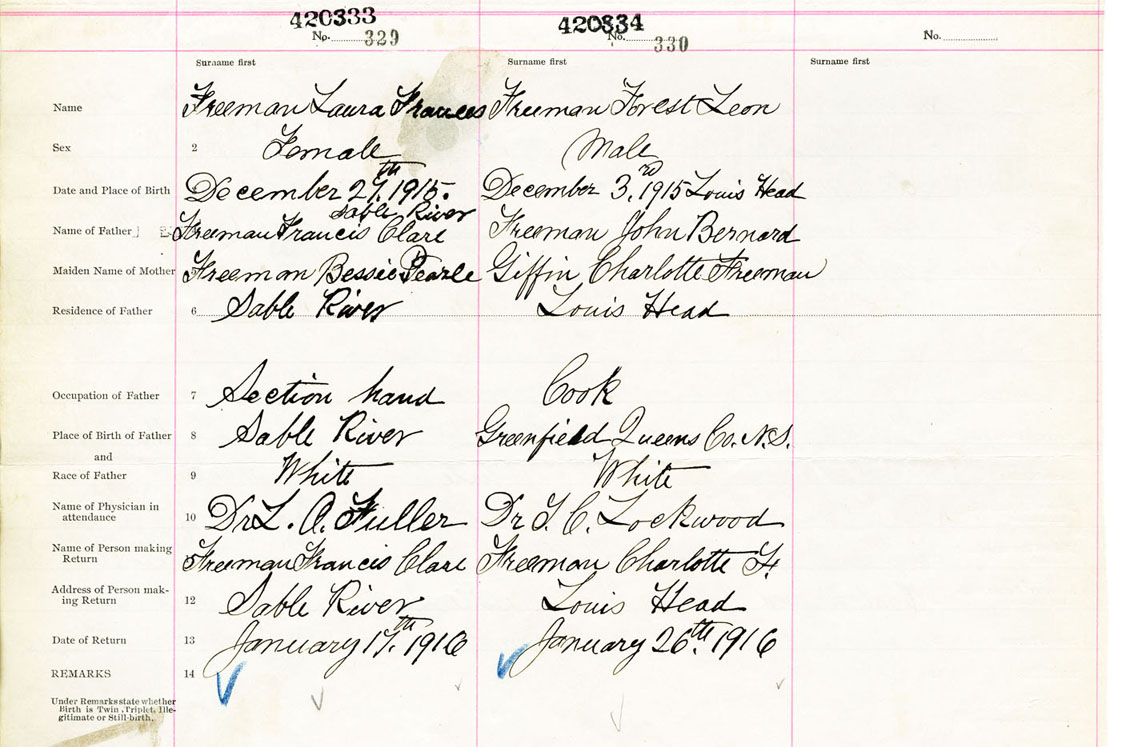 420333 420334
No. 329 No. 330 No.
Surname first Surname first Surname first
Name Freeman Laura Frances Freeman Forest Leon
Sex 2 Female Male
Date and Place of Birth December 27th, 1915. December 3rd, 1915 Louis Head
Sable River
Name of Father Freeman Francis Clare Freeman John Bernard
Maiden Name of Mother 5 Freeman Bessie Pearle Giffin Charlotte Freeman
Residence of Father 6 Sable River Louis Head
Occupation of Father 7 Section hand Cook
Place of Birth of Father 8 Sable River Greenfield Queens Co. N.S.
and
Race of Father 9 White White
Name of Physician in
attendance 10 Dr L. O. Fuller Dr T. C. Lockwood
Name of Person making
Return Freeman Francis Clare Freeman Charlotte F.
Address of Person mak-
ing Return 12 Sable River Louis Head
Date of Return 13 January 17th, 1916 January 26th, 1916
REMARKS 14
Under Remarks state whether
Birth is Twin, Triplet, Ille-
gitimate or Still-birth.